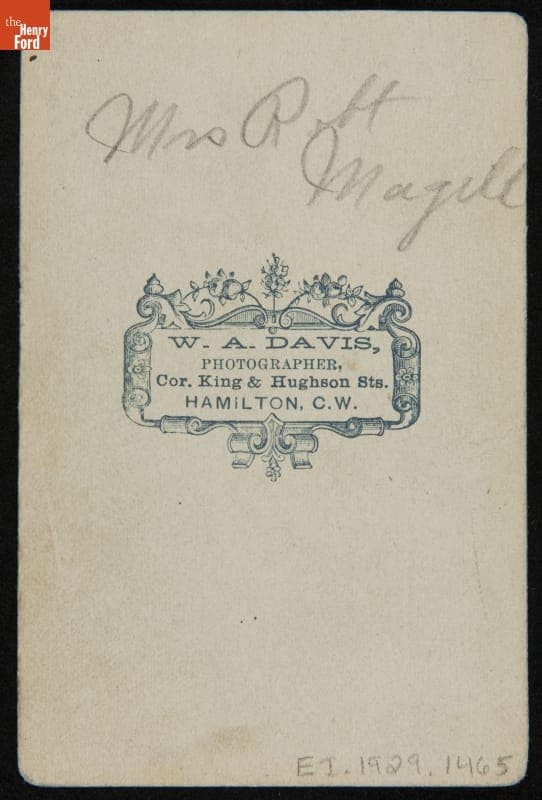 the
Henry
Ford
Mrs Robt
Magill
W. A. DAVIS,
PHOTOGRAPHER,
Cor. King & Hughson Sts.
HAMILTON, C.W.
EI.1929.1465